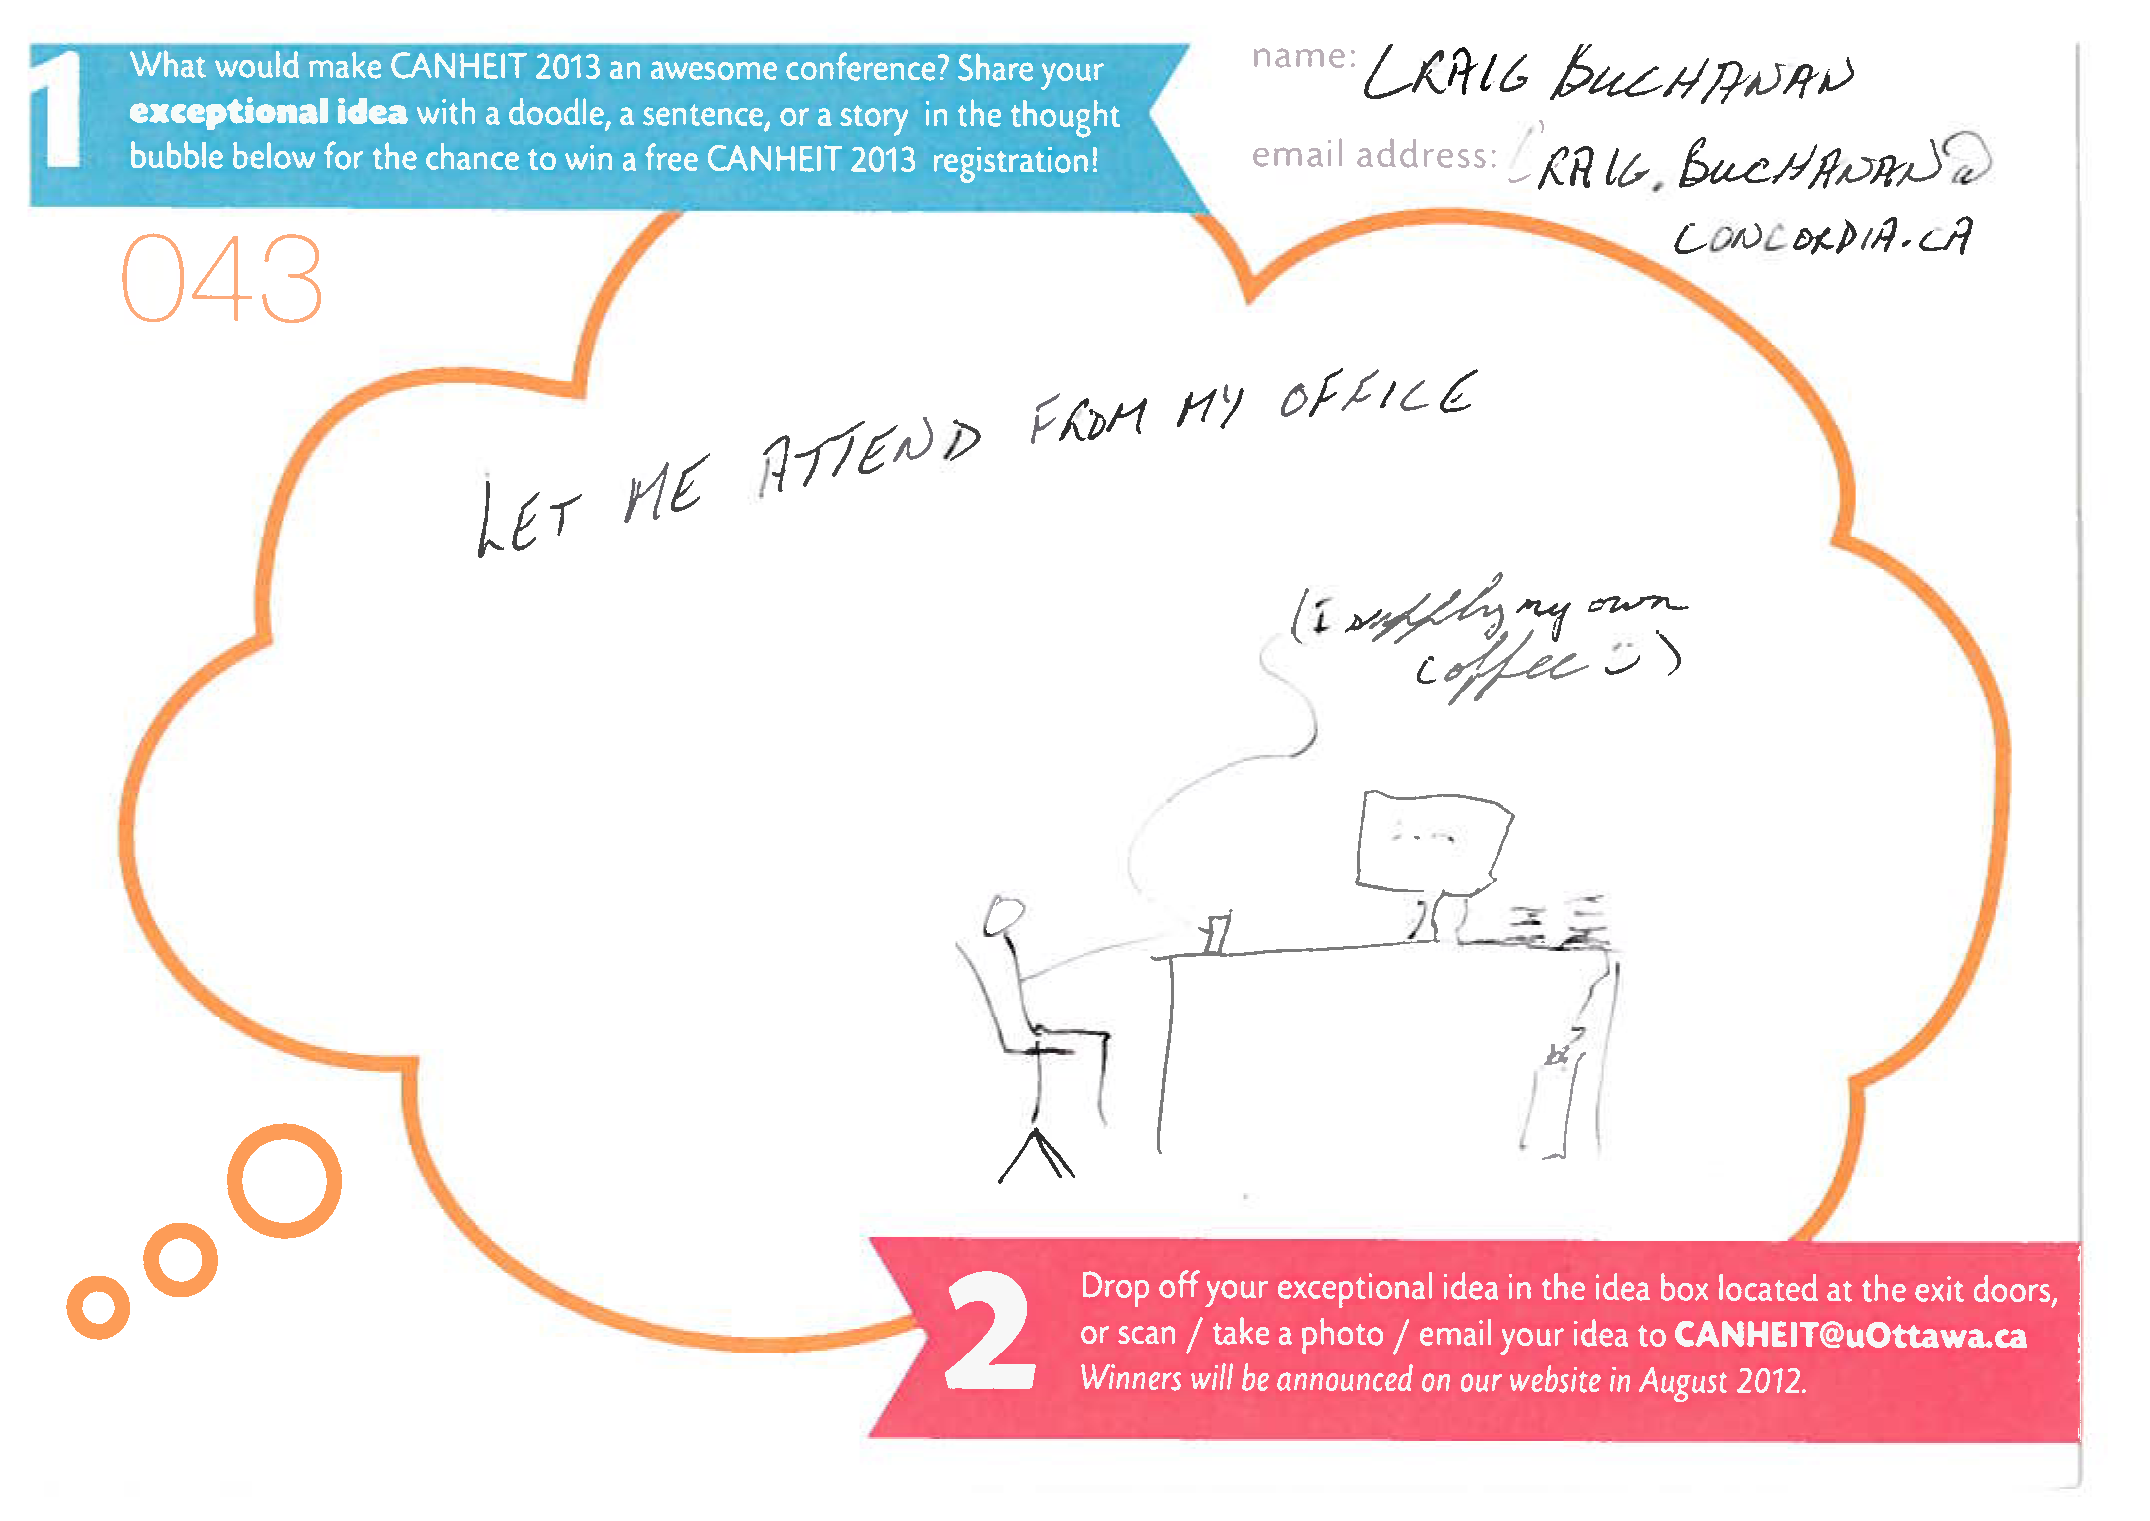 1
What would make CANHEIT 2013 an awesome conference? Share your
exceptional idea with a doodle, a sentence, or a story in the thought
bubble below for the chance to win a free CANHEIT 2013 registration!
name: CRAIG BUCHANAN
email address: CRAIG.BUCHANAN@
CONCORDIA.CA
043
LET ME ATTEND FROM MY OFFICE
(I supply my own
coffee :))
2
Drop off your exceptional idea in the idea box located at the exit doors,
or scan / take a photo / email your idea to CANHEIT@uOttawa.ca
Winners will be announced on our website in August 2012.